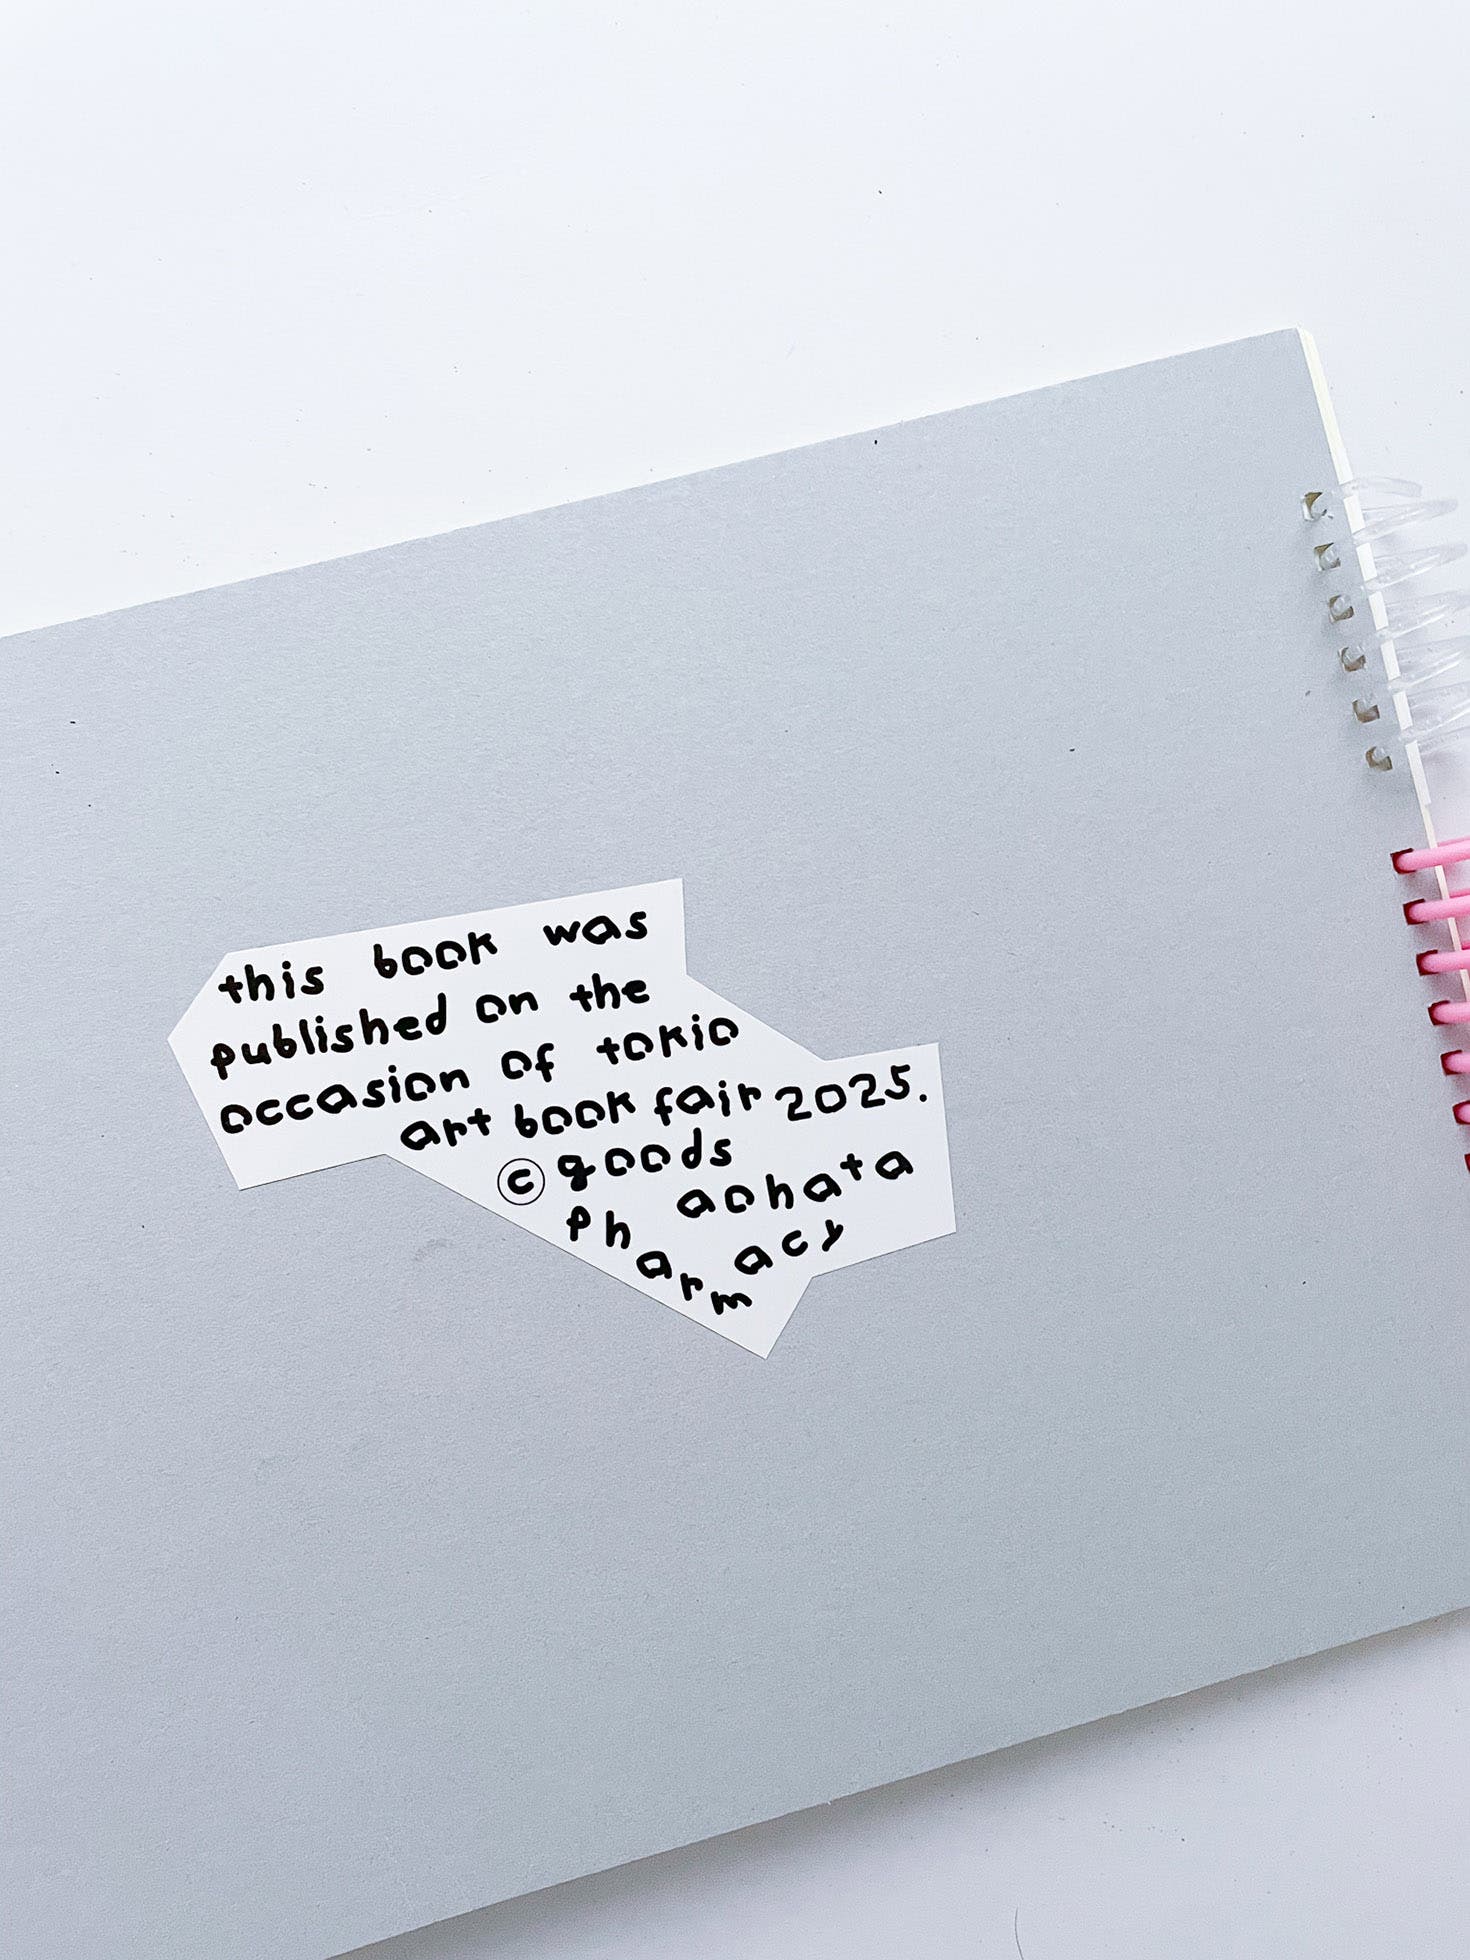 this book was
published on the
occasion of tokio
art book fair 2025.
© goods
aohata
pharmacy